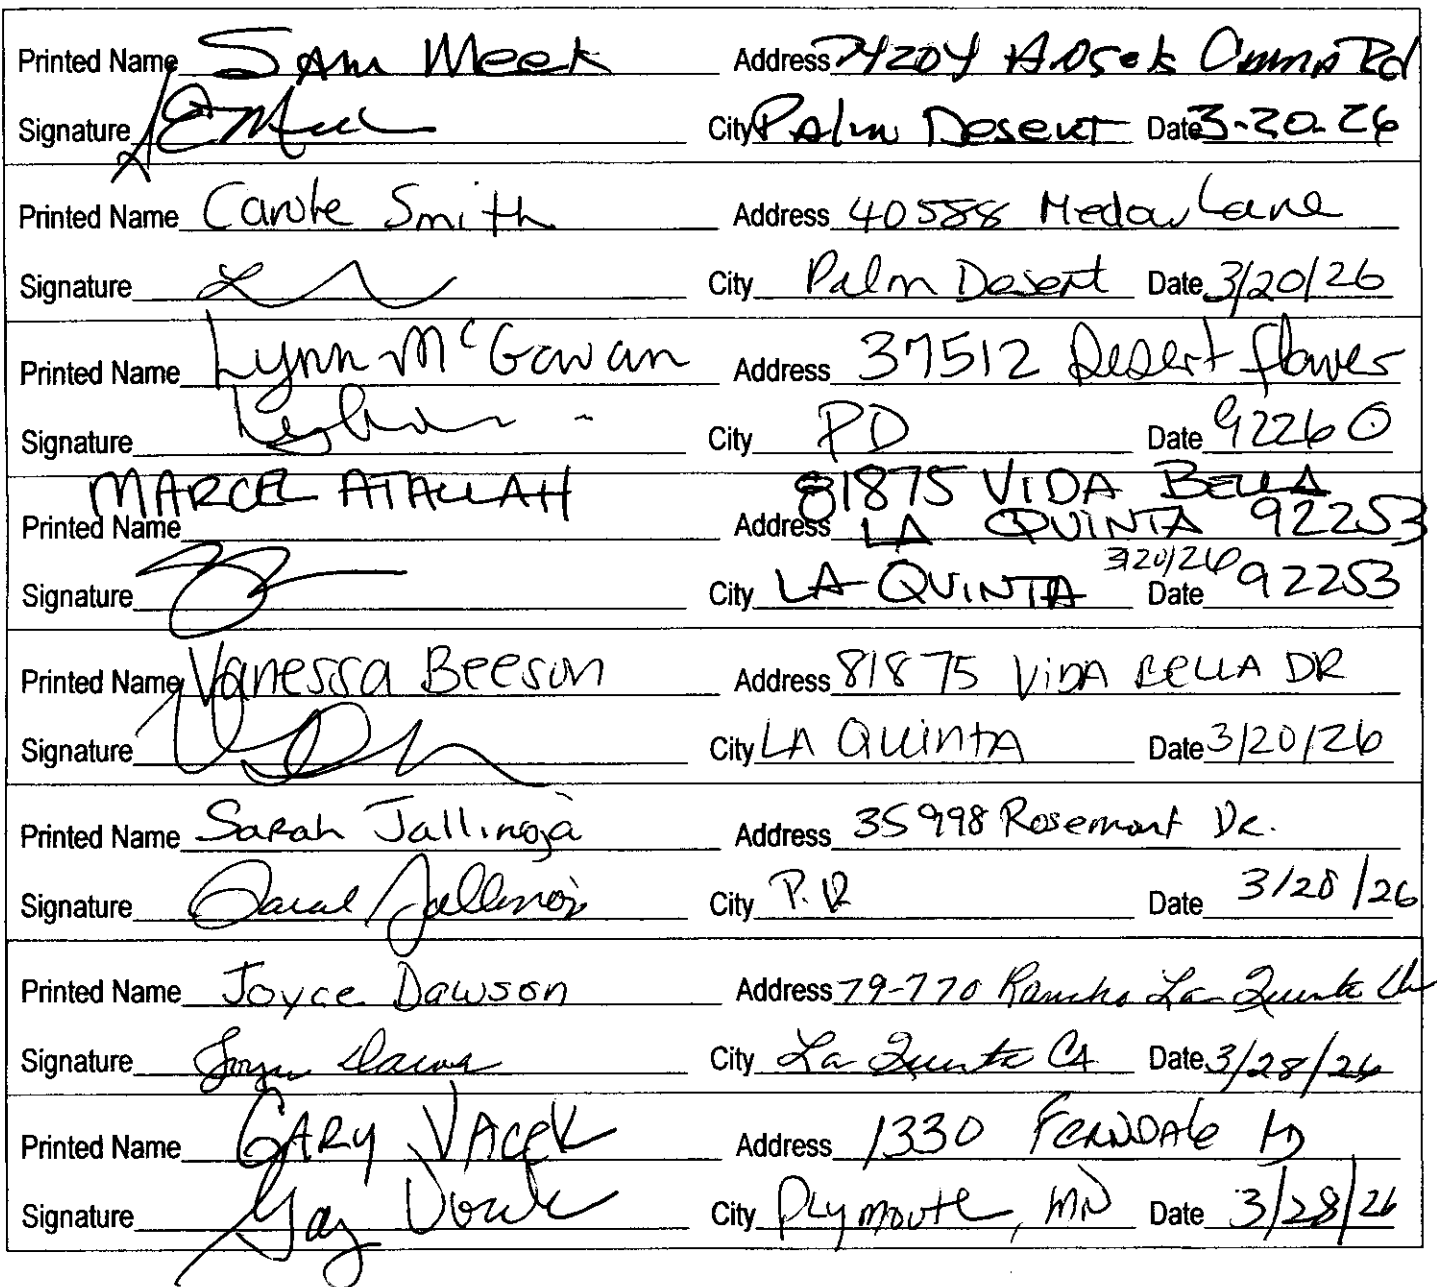 Printed Name Sam Meek Address 74204 Rd
Signature City Palm Desert Date 3-20-26
Printed Name Carole Smith Address 40588 Medow Lane
Signature City Palm Desert Date 3/20/26
Printed Name Lynn McGowan Address 37512 Desert flower
Signature City PD Date 92260
MARCEL ATALLAH 81875 VIDA BELLA
Printed Name Address LA QUINTA 92253
3/20/26
Signature City LA QUINTA Date 92253
Printed Name Vanessa Beeson Address 81875 VIDA BELLA DR
Signature City LA QUINTA Date 3/20/26
Printed Name Sarah Jallinoja Address 35998 Rosemont Dr.
Signature Sarah Jallinoja City Date 3/28/26
Printed Name Joyce Dawson Address 79-770 Rancho La Quinta Dr
Signature Joyce Dawson City La Quinta CA Date 3/28/26
Printed Name GARY VACEK Address 1330 FERNDALE
Signature Gary Vacek City Plymouth, MN Date 3/28/26